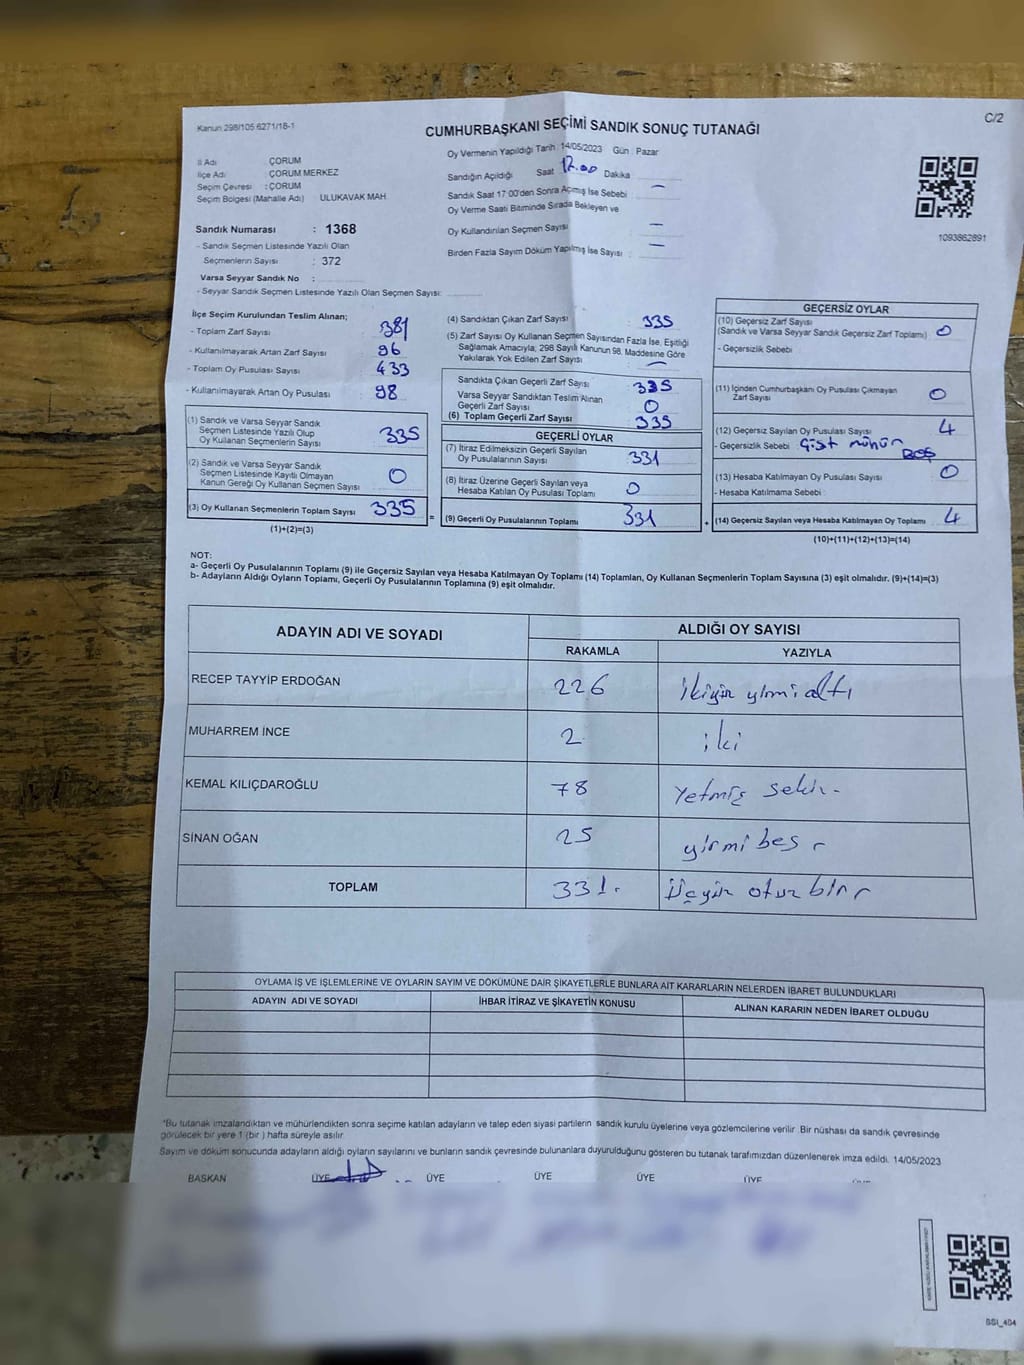 Kanun 298/105 6271/18-1
C/2
CUMHURBAŞKANI SEÇİMİ SANDIK SONUÇ TUTANAĞI
İl Adı ÇORUM
İlçe Adı ÇORUM MERKEZ
Seçim Çevresi : ÇORUM
Seçim Bölgesi (Mahalle Adı) ULUKAVAK MAH
Sandık Numarası : 1368
- Sandık Seçmen Listesinde Yazılı Olan
Seçmenlerin Sayısı : 372
Varsa Seyyar Sandık No :
- Seyyar Sandık Seçmen Listesinde Yazılı Olan Seçmen Sayısı:
Oy Vermenin Yapıldığı Tarih 14/05/2023 Gün : Pazar
Sandığın Açıldığı Saat 17.00 Dakika
Sandık Saat 17:00'den Sonra Açılmış İse Sebebi —
Oy Verme Saati Bitiminde Sırada Bekleyen ve
Oy Kullandırılan Seçmen Sayısı —
Birden Fazla Sayım Döküm Yapılmış İse Sayısı : —
1093862891
İlçe Seçim Kurulundan Teslim Alınan;
- Toplam Zarf Sayısı 381
- Kullanılmayarak Artan Zarf Sayısı 96
- Toplam Oy Pusulası Sayısı 433
- Kullanılmayarak Artan Oy Pusulası 98
(1) Sandık ve Varsa Seyyar Sandık
Seçmen Listesinde Yazılı Olup
Oy Kullanan Seçmenlerin Sayısı 335
(2) Sandık ve Varsa Seyyar Sandık
Seçmen Listesinde Kayıtlı Olmayan
Kanun Gereği Oy Kullanan Seçmen Sayısı 0
(3) Oy Kullanan Seçmenlerin Toplam Sayısı 335
(1)+(2)=(3)
(4) Sandıktan Çıkan Zarf Sayısı : 335
(5) Zarf Sayısı Oy Kullanan Seçmen Sayısından Fazla İse, Eşitliği
Sağlamak Amacıyla; 298 Sayılı Kanunun 98. Maddesine Göre
Yakılarak Yok Edilen Zarf Sayısı : —
Sandıkta Çıkan Geçerli Zarf Sayısı 335
Varsa Seyyar Sandıktan Teslim Alınan
Geçerli Zarf Sayısı 0
(6) Toplam Geçerli Zarf Sayısı 335
GEÇERLİ OYLAR
(7) İtiraz Edilmeksizin Geçerli Sayılan
Oy Pusulalarının Sayısı 331
(8) İtiraz Üzerine Geçerli Sayılan veya
Hesaba Katılan Oy Pusulası Toplamı 0
= (9) Geçerli Oy Pusulalarının Toplamı 331 +
GEÇERSİZ OYLAR
(10) Geçersiz Zarf Sayısı
(Sandık ve Varsa Seyyar Sandık Geçersiz Zarf Toplamı) 0
- Geçersizlik Sebebi
(11) İçinden Cumhurbaşkanı Oy Pusulası Çıkmayan
Zarf Sayısı 0
(12) Geçersiz Sayılan Oy Pusulası Sayısı 4
- Geçersizlik Sebebi Çist mühür
Boş
(13) Hesaba Katılmayan Oy Pusulası Sayısı 0
- Hesaba Katılmama Sebebi
(14) Geçersiz Sayılan veya Hesaba Katılmayan Oy Toplamı 4
(10)+(11)+(12)+(13)=(14)
NOT:
a- Geçerli Oy Pusulalarının Toplamı (9) ile Geçersiz Sayılan veya Hesaba Katılmayan Oy Toplamı (14) Toplamları, Oy Kullanan Seçmenlerin Toplam Sayısına (3) eşit olmalıdır. (9)+(14)=(3)
b- Adayların Aldığı Oyların Toplamı, Geçerli Oy Pusulalarının Toplamına (9) eşit olmalıdır.
ADAYIN ADI VE SOYADI ALDIĞI OY SAYISI
RAKAMLA YAZIYLA
RECEP TAYYİP ERDOĞAN 226 ikiyüz yirmi altı
MUHARREM İNCE 2 iki
KEMAL KILIÇDAROĞLU 78 Yetmiş sekiz
SİNAN OĞAN 25 yirmi beş
TOPLAM 331. Üçyüz otuz bir
OYLAMA İŞ VE İŞLEMLERİNE VE OYLARIN SAYIM VE DÖKÜMÜNE DAİR ŞİKAYETLERLE BUNLARA AİT KARARLARIN NELERDEN İBARET BULUNDUKLARI
ADAYIN ADI VE SOYADI İHBAR İTİRAZ VE ŞİKAYETİN KONUSU ALINAN KARARIN NEDEN İBARET OLDUĞU
*Bu tutanak imzalandıktan ve mühürlendikten sonra seçime katılan adayların ve talep eden siyasi partilerin sandık kurulu üyelerine veya gözlemcilerine verilir. Bir nüshası da sandık çevresinde
görülecek bir yere 1 (bir ) hafta süreyle asılır.
Sayım ve döküm sonucunda adayların aldığı oyların sayılarını ve bunların sandık çevresinde bulunanlara duyurulduğunu gösteren bu tutanak tarafımızdan düzenlenerek imza edildi. 14/05/2023
BAŞKAN ÜYE ÜYE ÜYE ÜYE ÜYE